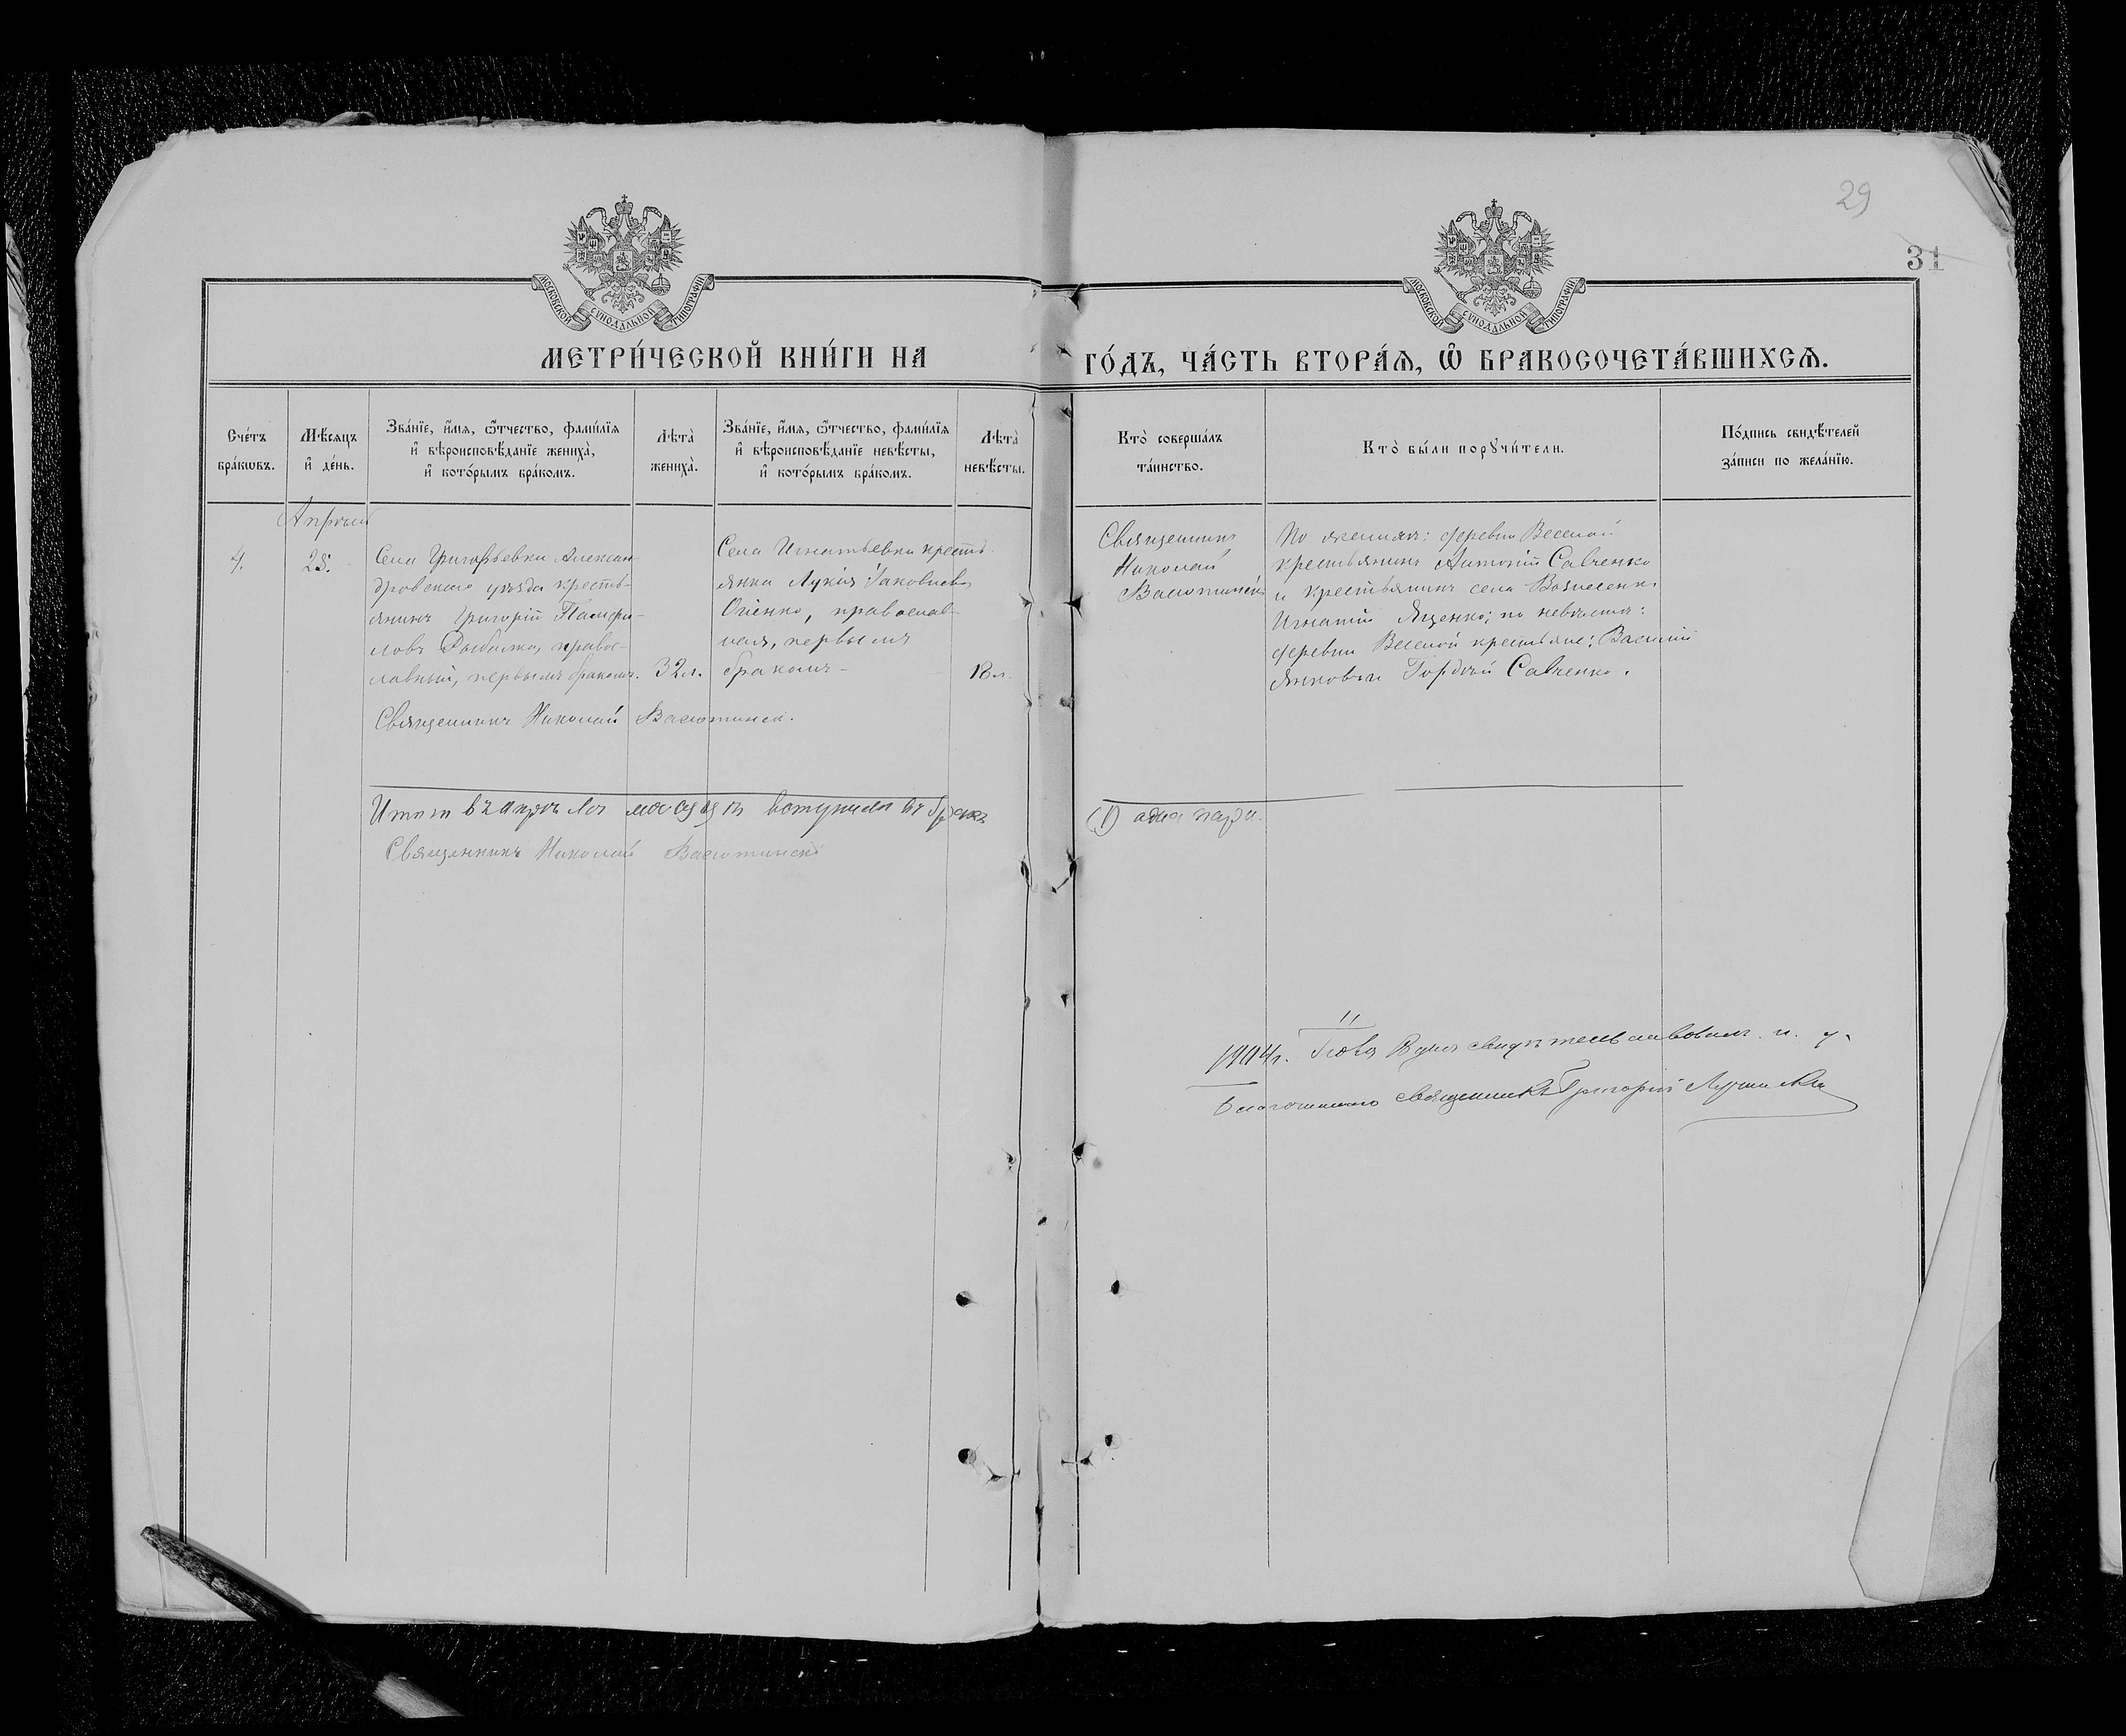 29
31
МОСКОВСКОЙ СѴНОДАЛЬНОЙ ТИПОГРАФІИ
МОСКОВСКОЙ СѴНОДАЛЬНОЙ ТИПОГРАФІИ
МЕТРИ́ЧЕСКОЙ КНИ́ГИ НА
ГО́ДЪ, ЧА́СТЬ ВТОРА́Ѧ, Ѽ БРАКОСОЧЕТА́ВШИХСѦ.
Сче́тъ
бра́кѡвъ.
Мѣ́сѧцъ
и҆ де́нь.
Зва́нїе, и҆́мѧ, ѻ҆́тчество, фами́лїѧ
и҆ вѣроисповѣ́данїе жениха̀,
и҆ кото́рымъ бра́комъ.
Лѣта̀
жениха̀.
Зва́нїе, и҆́мѧ, ѻ҆́тчество, фами́лїѧ
и҆ вѣроисповѣ́данїе невѣ́сты,
и҆ кото́рымъ бра́комъ.
Лѣта̀
невѣ́сты.
Кто̀ соверша́лъ
та́инство.
Кто̀ бы́ли порꙋчи́тели.
По́дпись свидѣ́телей
за́писи по жела́нїю.
Апрѣль
4.
28.
Села Григорьевки Алексан-
дровскаго уѣзда кресть-
янинъ Григорій Памфи-
ловъ правос-
лавный, первымъ бракомъ.
32 л.
Села Игнатьевки кресть-
янка Лукія Іаковлева
Огіенко, православ-
ная, первымъ
бракомъ-
18 л.
Священникъ
Николай
Васютинскій
По женихѣ: деревни Веселой
крестьянинъ Антоній Савченко
и крестьянинъ села Вознесенки
Игнатій Яценко; по невѣстѣ:
деревни Веселой крестьяне: Василій
Гордѣй Савченко.
Священникъ Николай Васютинск.
Итого въ апрѣлѣ мѣсяцѣ вступила въ бракъ
(1) одна пара.
Священникъ Николай Васютинскій
1904 г. свидѣтельствовалъ и. д.
благочиннаго священникъ Григорій